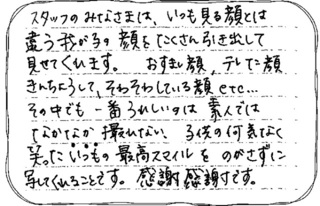 スタッフのみなさまは、いつも見る顔とは
違う我が子の顔をたくさん引き出して
見せてくれます。 おすまし顔、テレた顔
きんちょうして、そわそわしている顔 etc…
その中でも一番うれしいのは 素人では
なかなか撮れない、子供の何気なく
笑ったいつもの最高スマイルを のがさずに
写してくれることです。感謝感謝です。